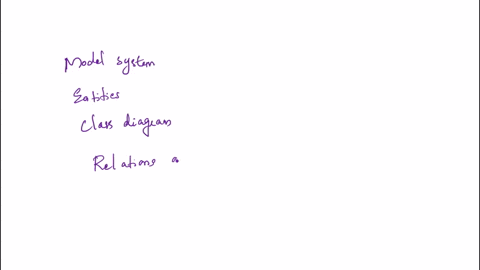 Model system
Entities
Class diagram
Relations a